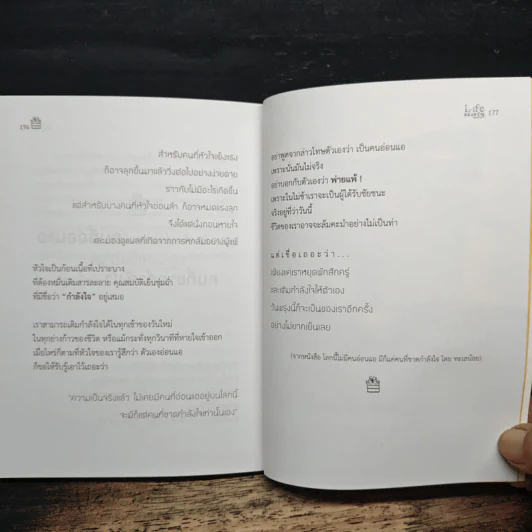 176
สำหรับคนที่หัวใจแข็งแรง
ก็อาจลุกขึ้นมาแล้ววิ่งต่อไปอย่างง่ายดาย
ราวกับไม่มีอะไรเกิดขึ้น
แต่สำหรับบางคนที่หัวใจอ่อนล้า ก็อาจหมดแรงลุก
จึงได้แต่นั่งถอนหายใจ
และมองดูแผลที่เกิดจากการหกล้มอย่างผู้แพ้
หัวใจเป็นก้อนเนื้อที่เปราะบาง
ที่ต้องหมั่นเติมสาระละลาย คุณสมบัติเย็นชุ่มฉ่ำ
ที่มีชื่อว่า "กำลังใจ" อยู่เสมอ
เราสามารถเติมกำลังใจได้ในทุกเช้าของวันใหม่
ในทุกย่างก้าวของชีวิต หรือแม้กระทั่งทุกวินาทีที่หายใจเข้าออก
เมื่อไหร่ก็ตามที่หัวใจของเรารู้สึกว่า ตัวเองอ่อนแอ
ก็ขอให้รับรู้เอาไว้เถอะว่า
"ความเป็นจริงแล้ว ไม่เคยมีคนที่อ่อนแออยู่บนโลกนี้
จะมีก็แต่คนที่ขาดกำลังใจเท่านั้นเอง"
Life
177
อย่าพูดจากล่าวโทษตัวเองว่า เป็นคนอ่อนแอ
เพราะนั่นมันไม่จริง
อย่าบอกกับตัวเองว่า พ่ายแพ้ !
เพราะในไม่ช้าเราจะเป็นผู้ได้รับชัยชนะ
จริงอยู่ที่ว่าวันนี้
ชีวิตของเราอาจจะล้มคะมำอย่างไม่เป็นท่า
แต่เชื่อเถอะว่า...
เพียงแค่เราหยุดพักสักครู่
และเติมกำลังใจให้ตัวเอง
วันพรุ่งนี้ก็จะเป็นของเราอีกครั้ง
อย่างไม่ยากเย็นเลย
(จากหนังสือ โลกนี้ไม่มีคนอ่อนแอ มีก็แค่คนที่ขาดกำลังใจ โดย ทะเลน้อย)